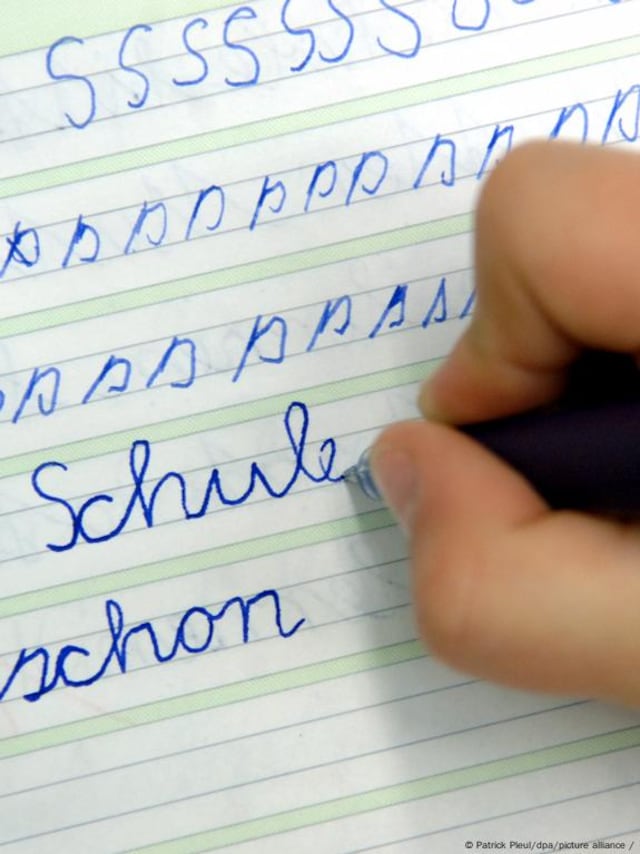 S S S S S S S
s s s s s s s s s s s
s s s s s s s s
Schule
schon
© Patrick Pleul/dpa/picture alliance /